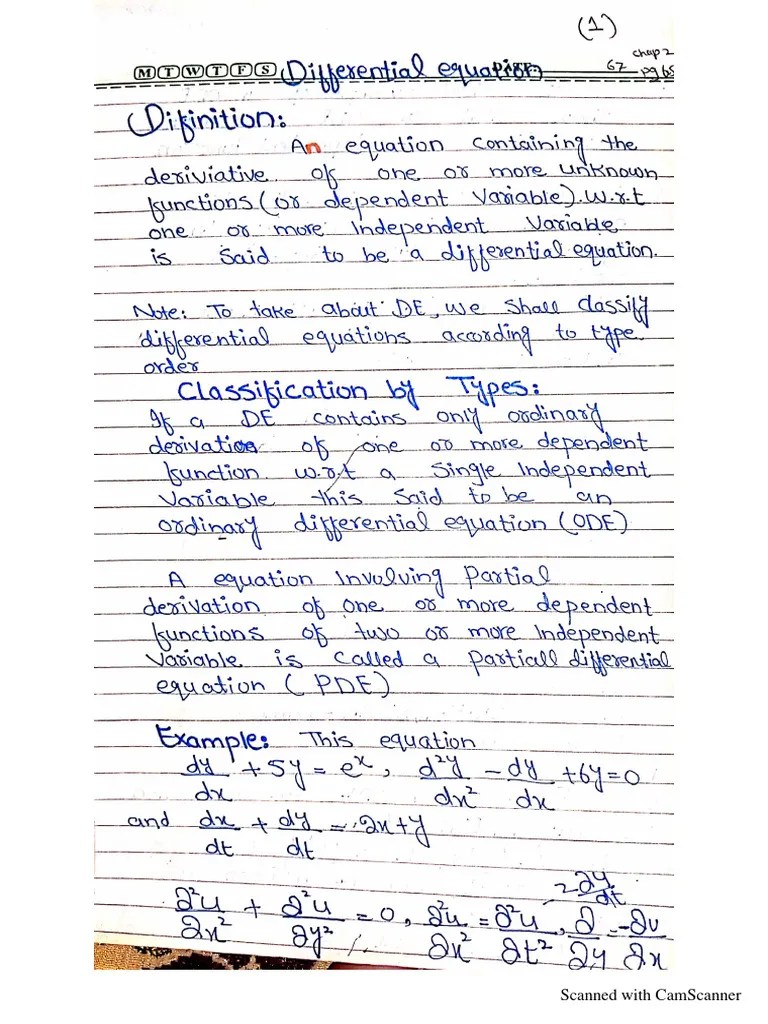 (1)
chap 2
M T W T F S Differential equation 67 pg 65
Difinition:
An equation containing the
deriviative of one or more unknown
functions (or dependent Variable). w.r.t
one or more Independent Variable
is Said to be a differential equation.
Note: To take about DE, we shall classify
differential equations according to type
order
Classification by Types:
If a DE contains only ordinary
derivation of one or more dependent
function w.r.t a Single Independent
Variable this Said to be an
ordinary differential equation (ODE)
A equation Involving Partial
derivation of one or more dependent
functions of two or more Independent
Variable is called a Partiall differential
equation ( PDE)
Example: This equation
dy/dx + 5y = eˣ, d²y/dx² - dy/dx + 6y = 0
and dx/dt + dy/dt = 2x + y
-2∂y/∂t
∂²u/∂x² + ∂²u/∂y² = 0, ∂²u/∂x² = ∂²u/∂t², ∂/∂y = -∂v/∂x
Scanned with CamScanner